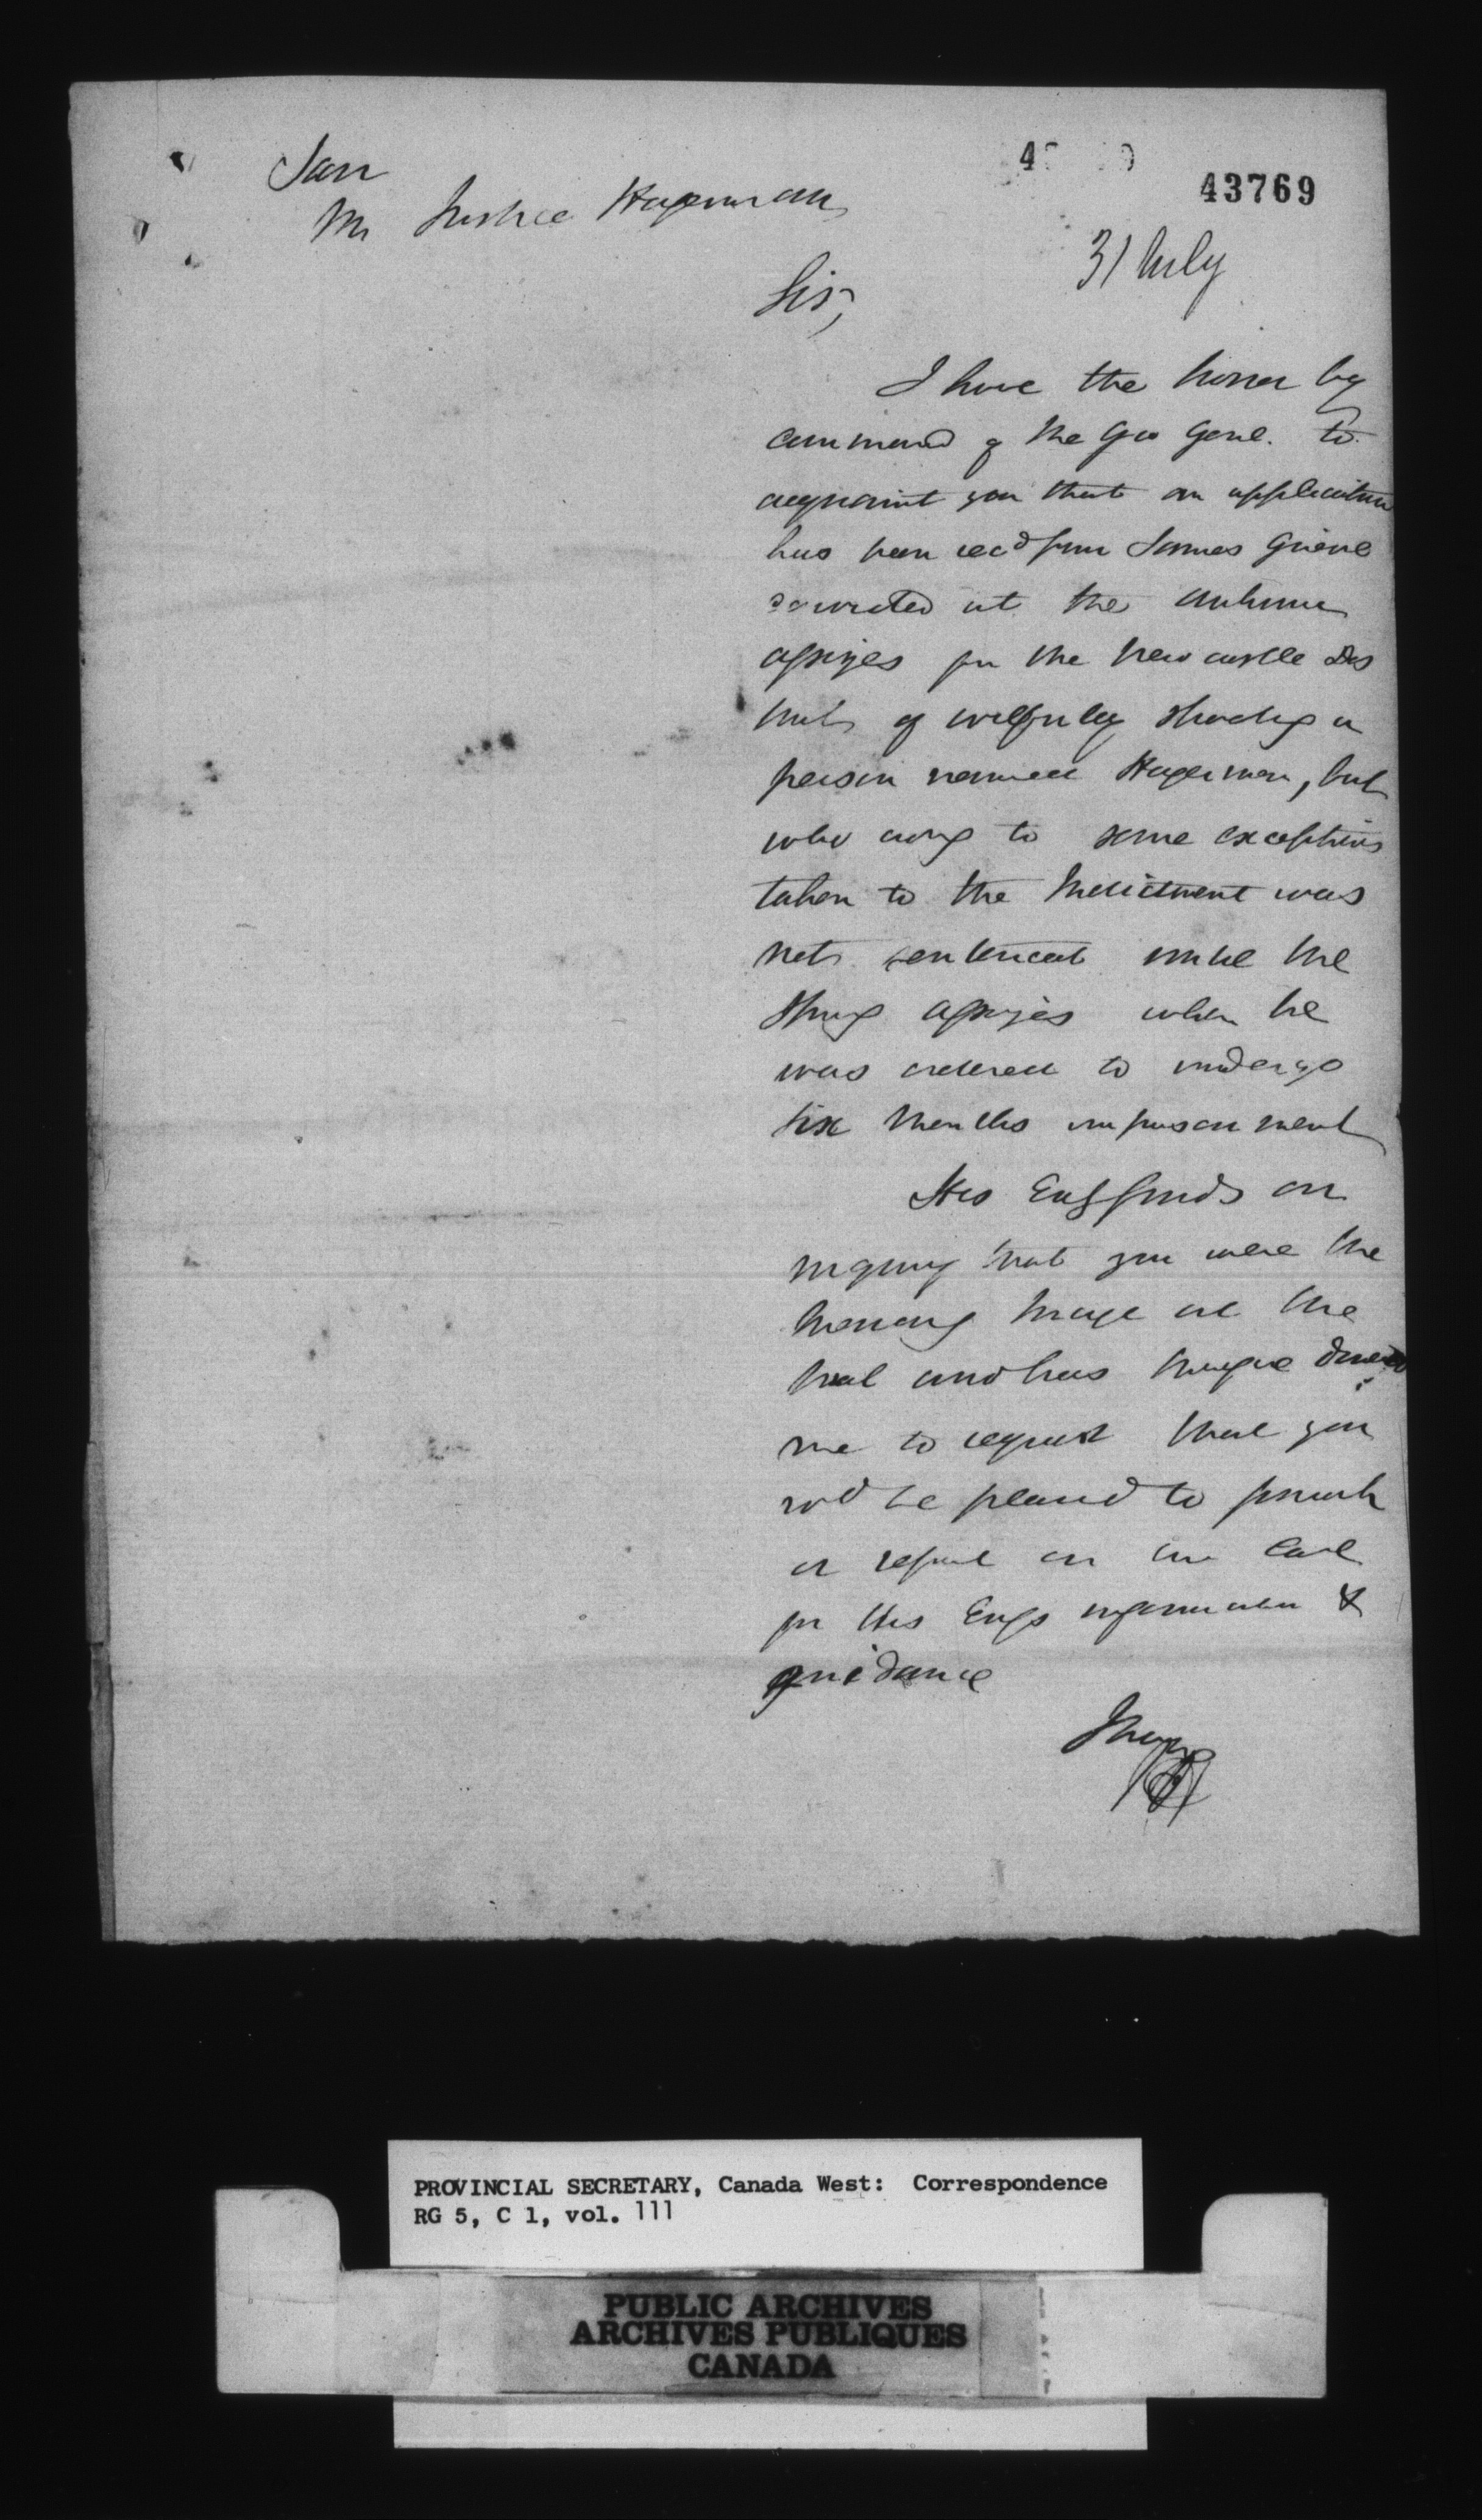 43769
Mr Justice Hagerman
31 July
Sir,
I have the honor by
command of the Gov Genl. to
acquaint you that an application
has been recd from James Grieve
convicted at the Autumn
assizes for the Newcastle Dis
trict of wilfully shooting a
person named Hagerman, but
who owing to some exceptions
taken to the Indictment was
not sentenced until the
Spring assizes when he
was ordered to undergo
six months imprisonment
His Exc finds on
inquiry that you were the
Judge at the
trial and has directed
me to request that you
wd be pleased to furnish
a report on the Case
for His Excys information &
guidance
PROVINCIAL SECRETARY, Canada West: Correspondence
RG 5, C 1, vol. 111
PUBLIC ARCHIVES
ARCHIVES PUBLIQUES
CANADA